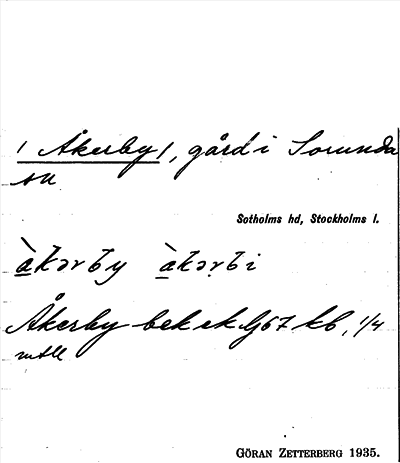 / Åkerby /, gård i Sorunda
sn
Sotholms hd, Stockholms l.
Åkerby bek ek G67 kb, 1/4
mtl
GÖRAN ZETTERBERG 1935.